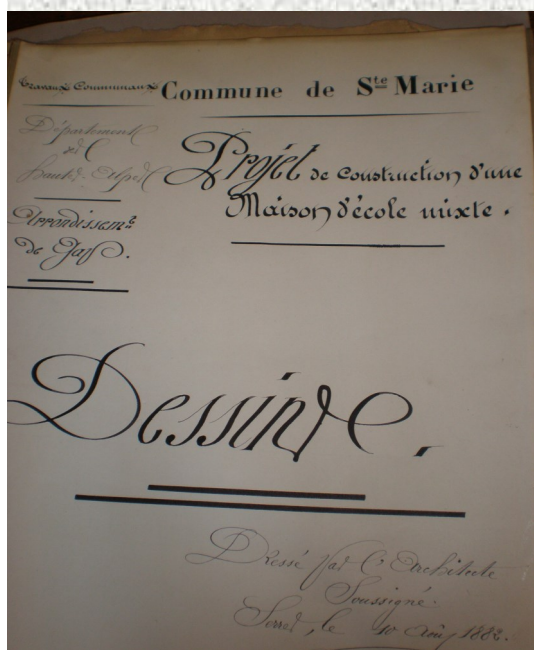 Travaux Communaux
Commune de Ste Marie
Département
des
Hautes-Alpes
Arrondissemt
de Gap.
Projet de construction d'une
Maison d'école mixte.
Dessins.
Dressé par l'Architecte
Soussigné.
Serres, le 10 Août 1882.